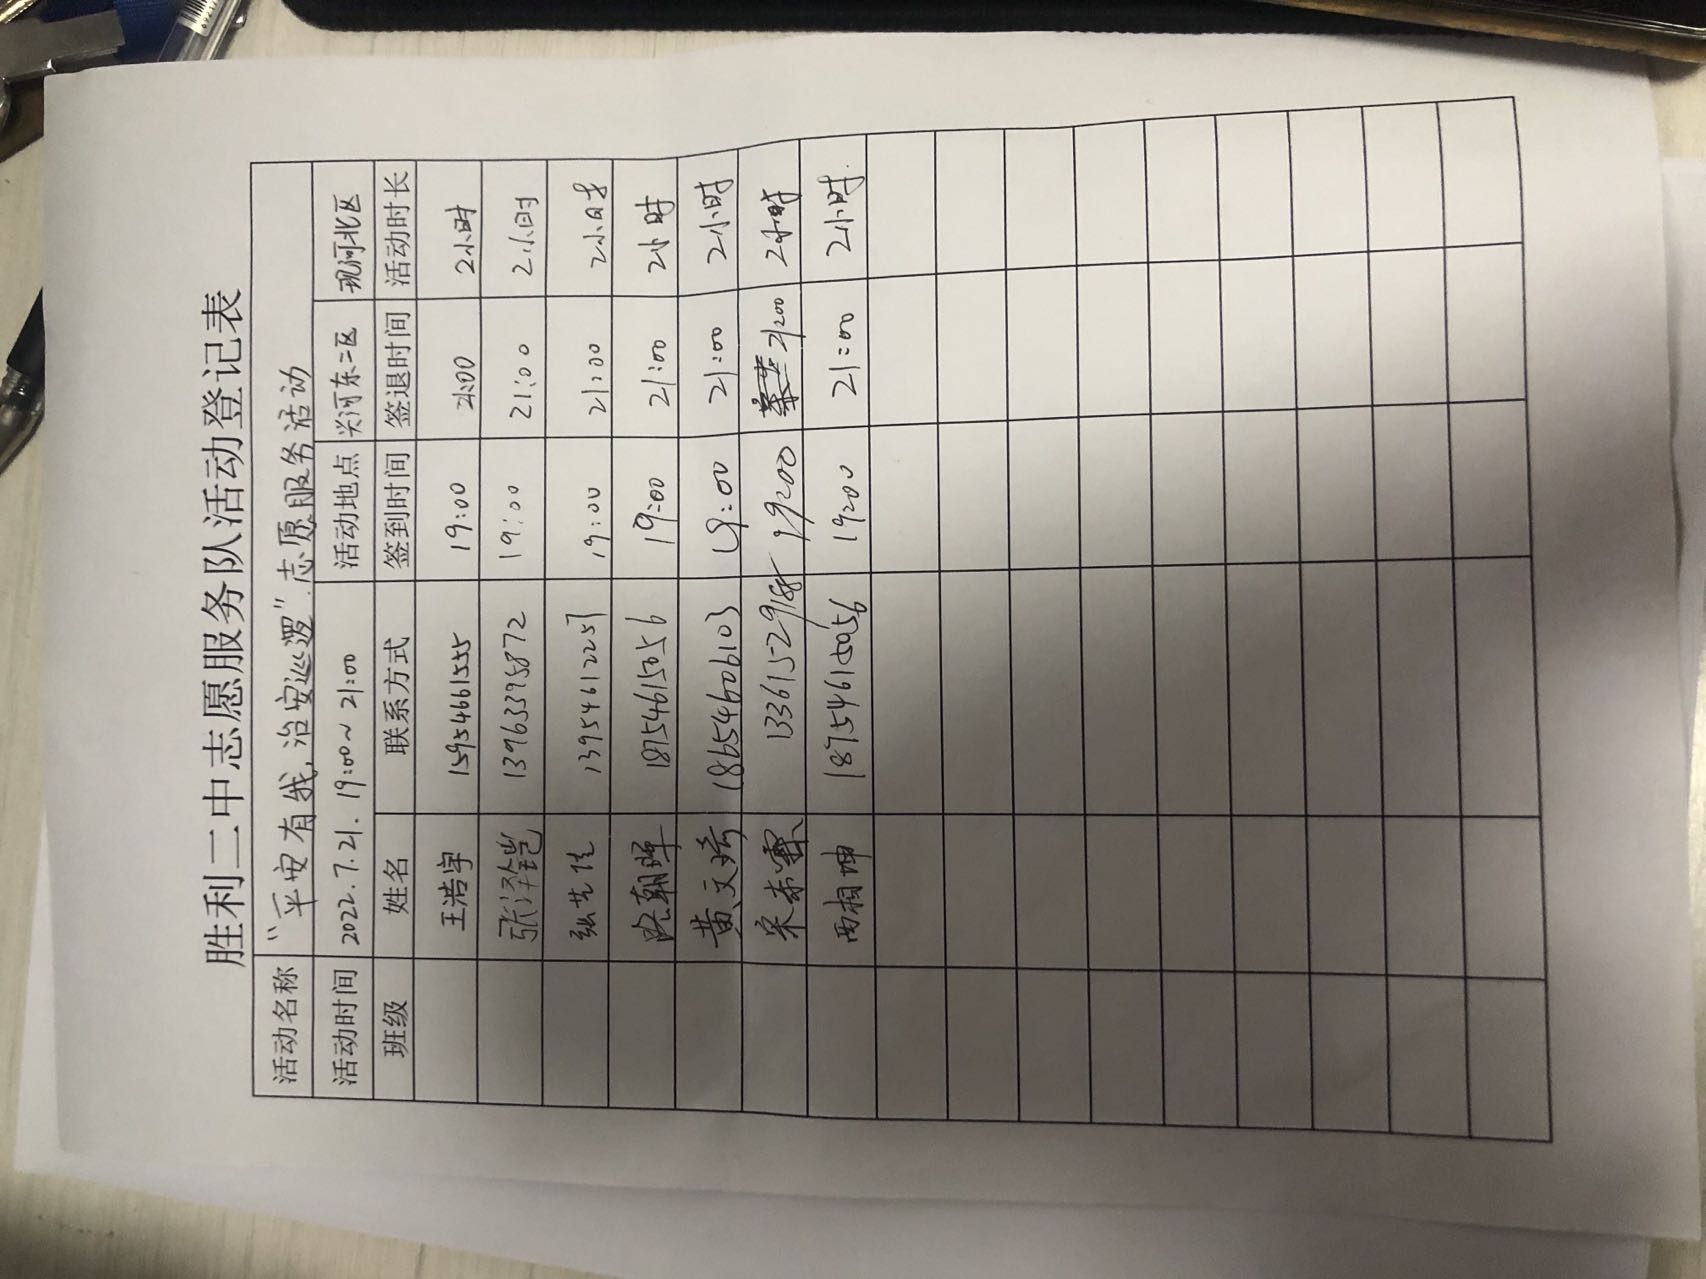 胜利二中志愿服务队活动登记表
活动名称 “平安有我，治安巡逻”志愿服务活动
活动时间 2022.7.21. 19:00~21:00 活动地点 兴河东二区 现河北区
班级 姓名 联系方式 签到时间 签退时间 活动时长
王浩宇 15954661555 19:00 21:00 2小时
张泽铠 13963395872 19:00 21:00 2小时
张艺佳 13954612251 19:00 21:00 2小时
路朝晖 18754615056 19:00 21:00 2小时
黄文琦 18654606103 19:00 21:00 2小时
宋 19:00 21:00 2小时
相坤 18754615056 19:00 21:00 2小时